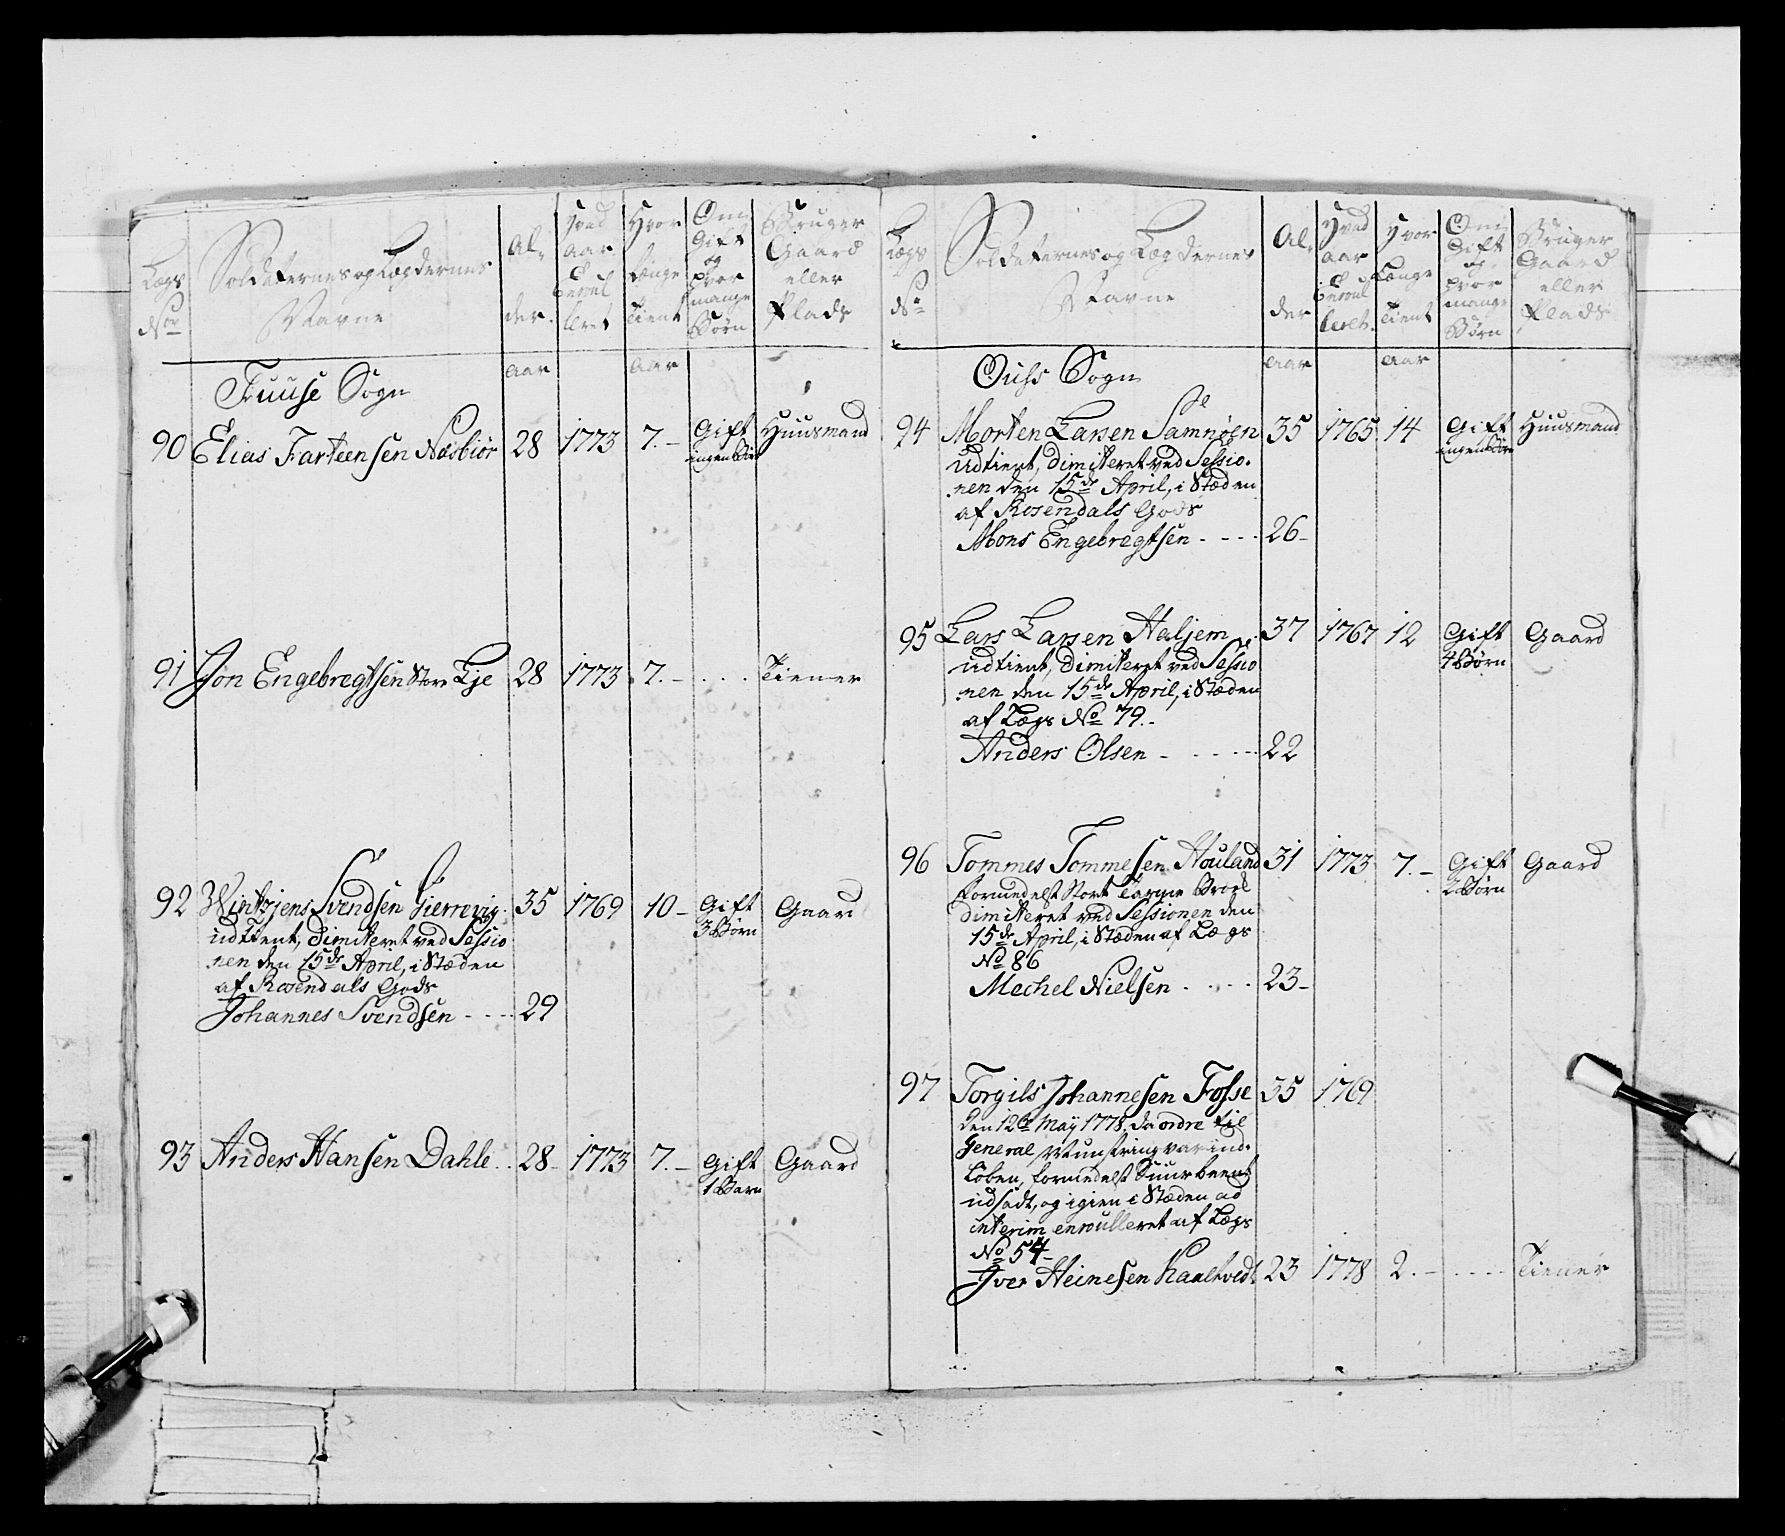 Lægs No
Soldaternes og Lægdernes Navne
Alder.
Hvad aar Enroulleret
Hvor længe Tient
Om Gift og hvor mange Børn
Bruger Gaard eller Plads
aar aar
Fuuse Sogn
90 Elias Farteensen Næsbiør 28 1773 7.- Gift Huusmand
ingen Børn
91 Jon Engebregtsen Store Lje 28 1773 7.- . . . Tiener
92 Wintzjens Svendsen Gierrevig. 35 1769 10- Gift Gaard
3 Børn
udtient, dimiteret ved Sessio
nen den 15de April, i Stæden
af Rosendals Gods
Johannes Svendsen - - - - 29
93 Anders Hansen Dahle . . 28- 1773 7.- Gift Gaard
1 Barn
Lægs No
Soldaternes og Lægdernes Navne
Alder
Hvad aar Enroulleret.
Hvor Længe Tient
Om Gift og hvor mange Børn
Bruger Gaard eller Plads
aar aar
Ouhs Sogn
94 Morten Larsen Samnøen 35 1765 14 Gift Huusmand
ingen Børn
Udtient, dimiteret ved Sessio-
nen den 15de April, i Stæden
af Rosendals Gods
Mons Engebregtsen - - - - 26-
95 Lars Larsen Haljem . 37 1767 12 Gift Gaard
4 Børn
udtient, dimiteret ved Sessio
nen den 15de April, i Stæden
af Lægs No 79.-
Anders Olsen - - - - - 22
96 Tommes Tommesen Houland 31 1773 7.- Gift Gaard
2 Børn
formedelst Stort Tarme Brok
dimiteret ved Sessionen den
15de April, i Stæden af Lægs
No 86
Mechel Nielsen - - - - 23-
97 Torgils Johannesen Fosse 35 1769
den 12te May 1778, da ordre til
General Munstring var ind-
Løben, formedelst Suur beens
udsadt, og igien i Stæden ad
interim enroulleret af Lægs
No 54-
Iver Heinesen Kaaltvedt 23 1778 2.- - - - - Tiener